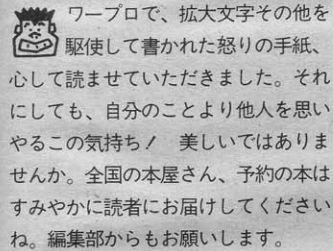 ワープロで、拡大文字その他を
駆使して書かれた怒りの手紙、
心して読ませていただきました。それ
にしても、自分のことより他人を思い
やるこの気持ち！　美しいではありま
せんか。全国の本屋さん、予約の本は
すみやかに読者にお届けしてください
ね。編集部からもお願いします。